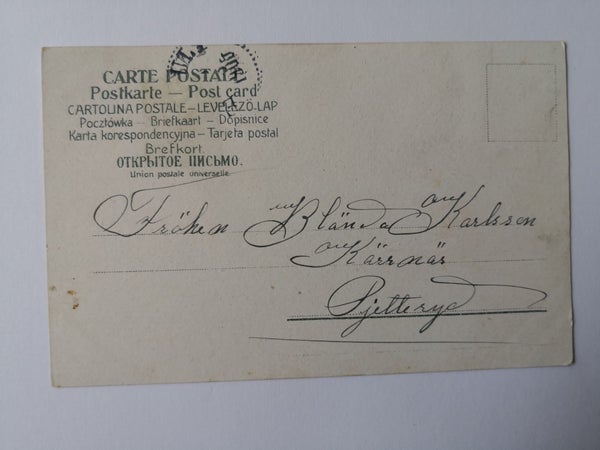 CARTE POSTALE
Postkarte — Post card
CARTOLINA POSTALE — LEVELEZÖ-LAP
Pocztówka — Briefkaart — Dopisnice
Karta korespondencyjna — Tarjeta postal
Brefkort.
ОТКРЫТОЕ ПИСЬМО.
Union postale universelle
Fröken Blända Karlsson
Kärrnäs
Pjetteryd